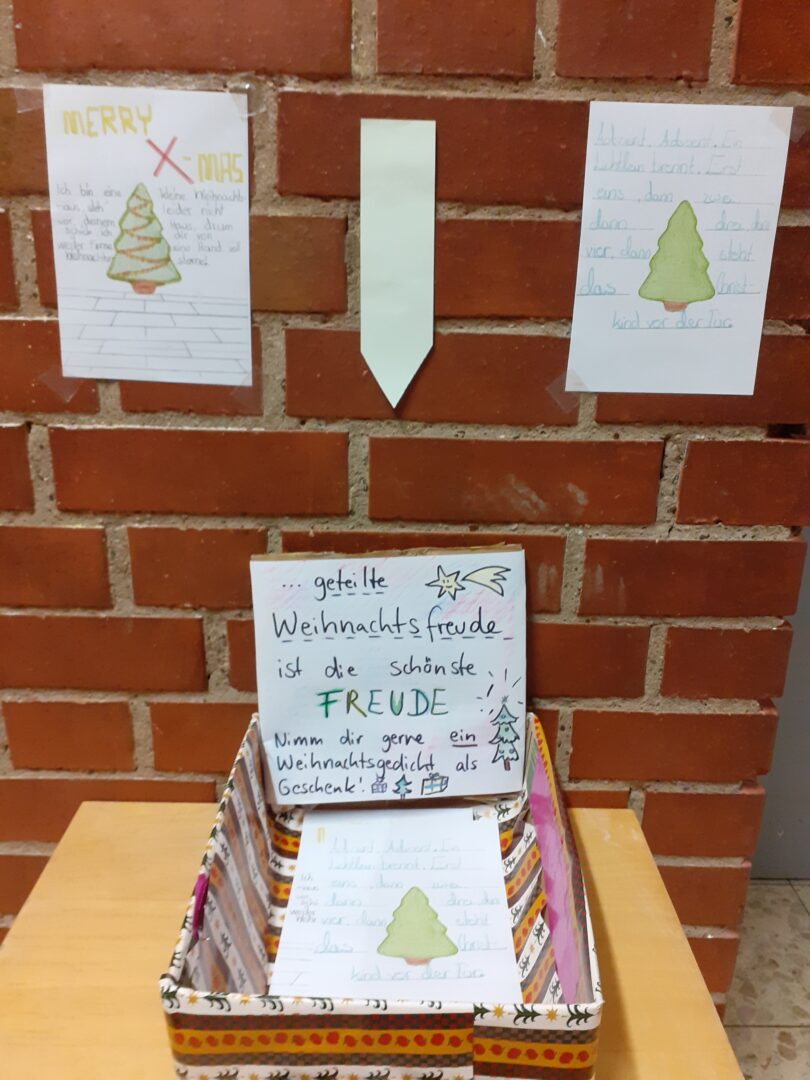 MERRY
X-MAS
Ich bin eine kleine Weihnachts-
-maus steh' leider nicht
vor deinem Haus, drum
schick ich dir von
weiter Ferne eine Hand voll
Weihnachts sterne!
Advent, Advent, Ein
Lichtlein brennt. Erst
eins, dann zwei
dann drei, dan
vier, dann steht
das Christ-
kind vor der Tür.
... geteilte
Weihnachtsfreude
ist die schönste
FREUDE
Nimm dir gerne ein
Weihnachtsgedicht als
Geschenk!
Advent, Advent, Ein
Lichtlein brennt. Erst
eins, dann zwei
dann drei, dan
vier, dann steht
das Christ-
kind vor der Tür.